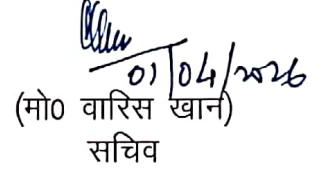 01/04/2026
(मो0 वारिस खान)
सचिव